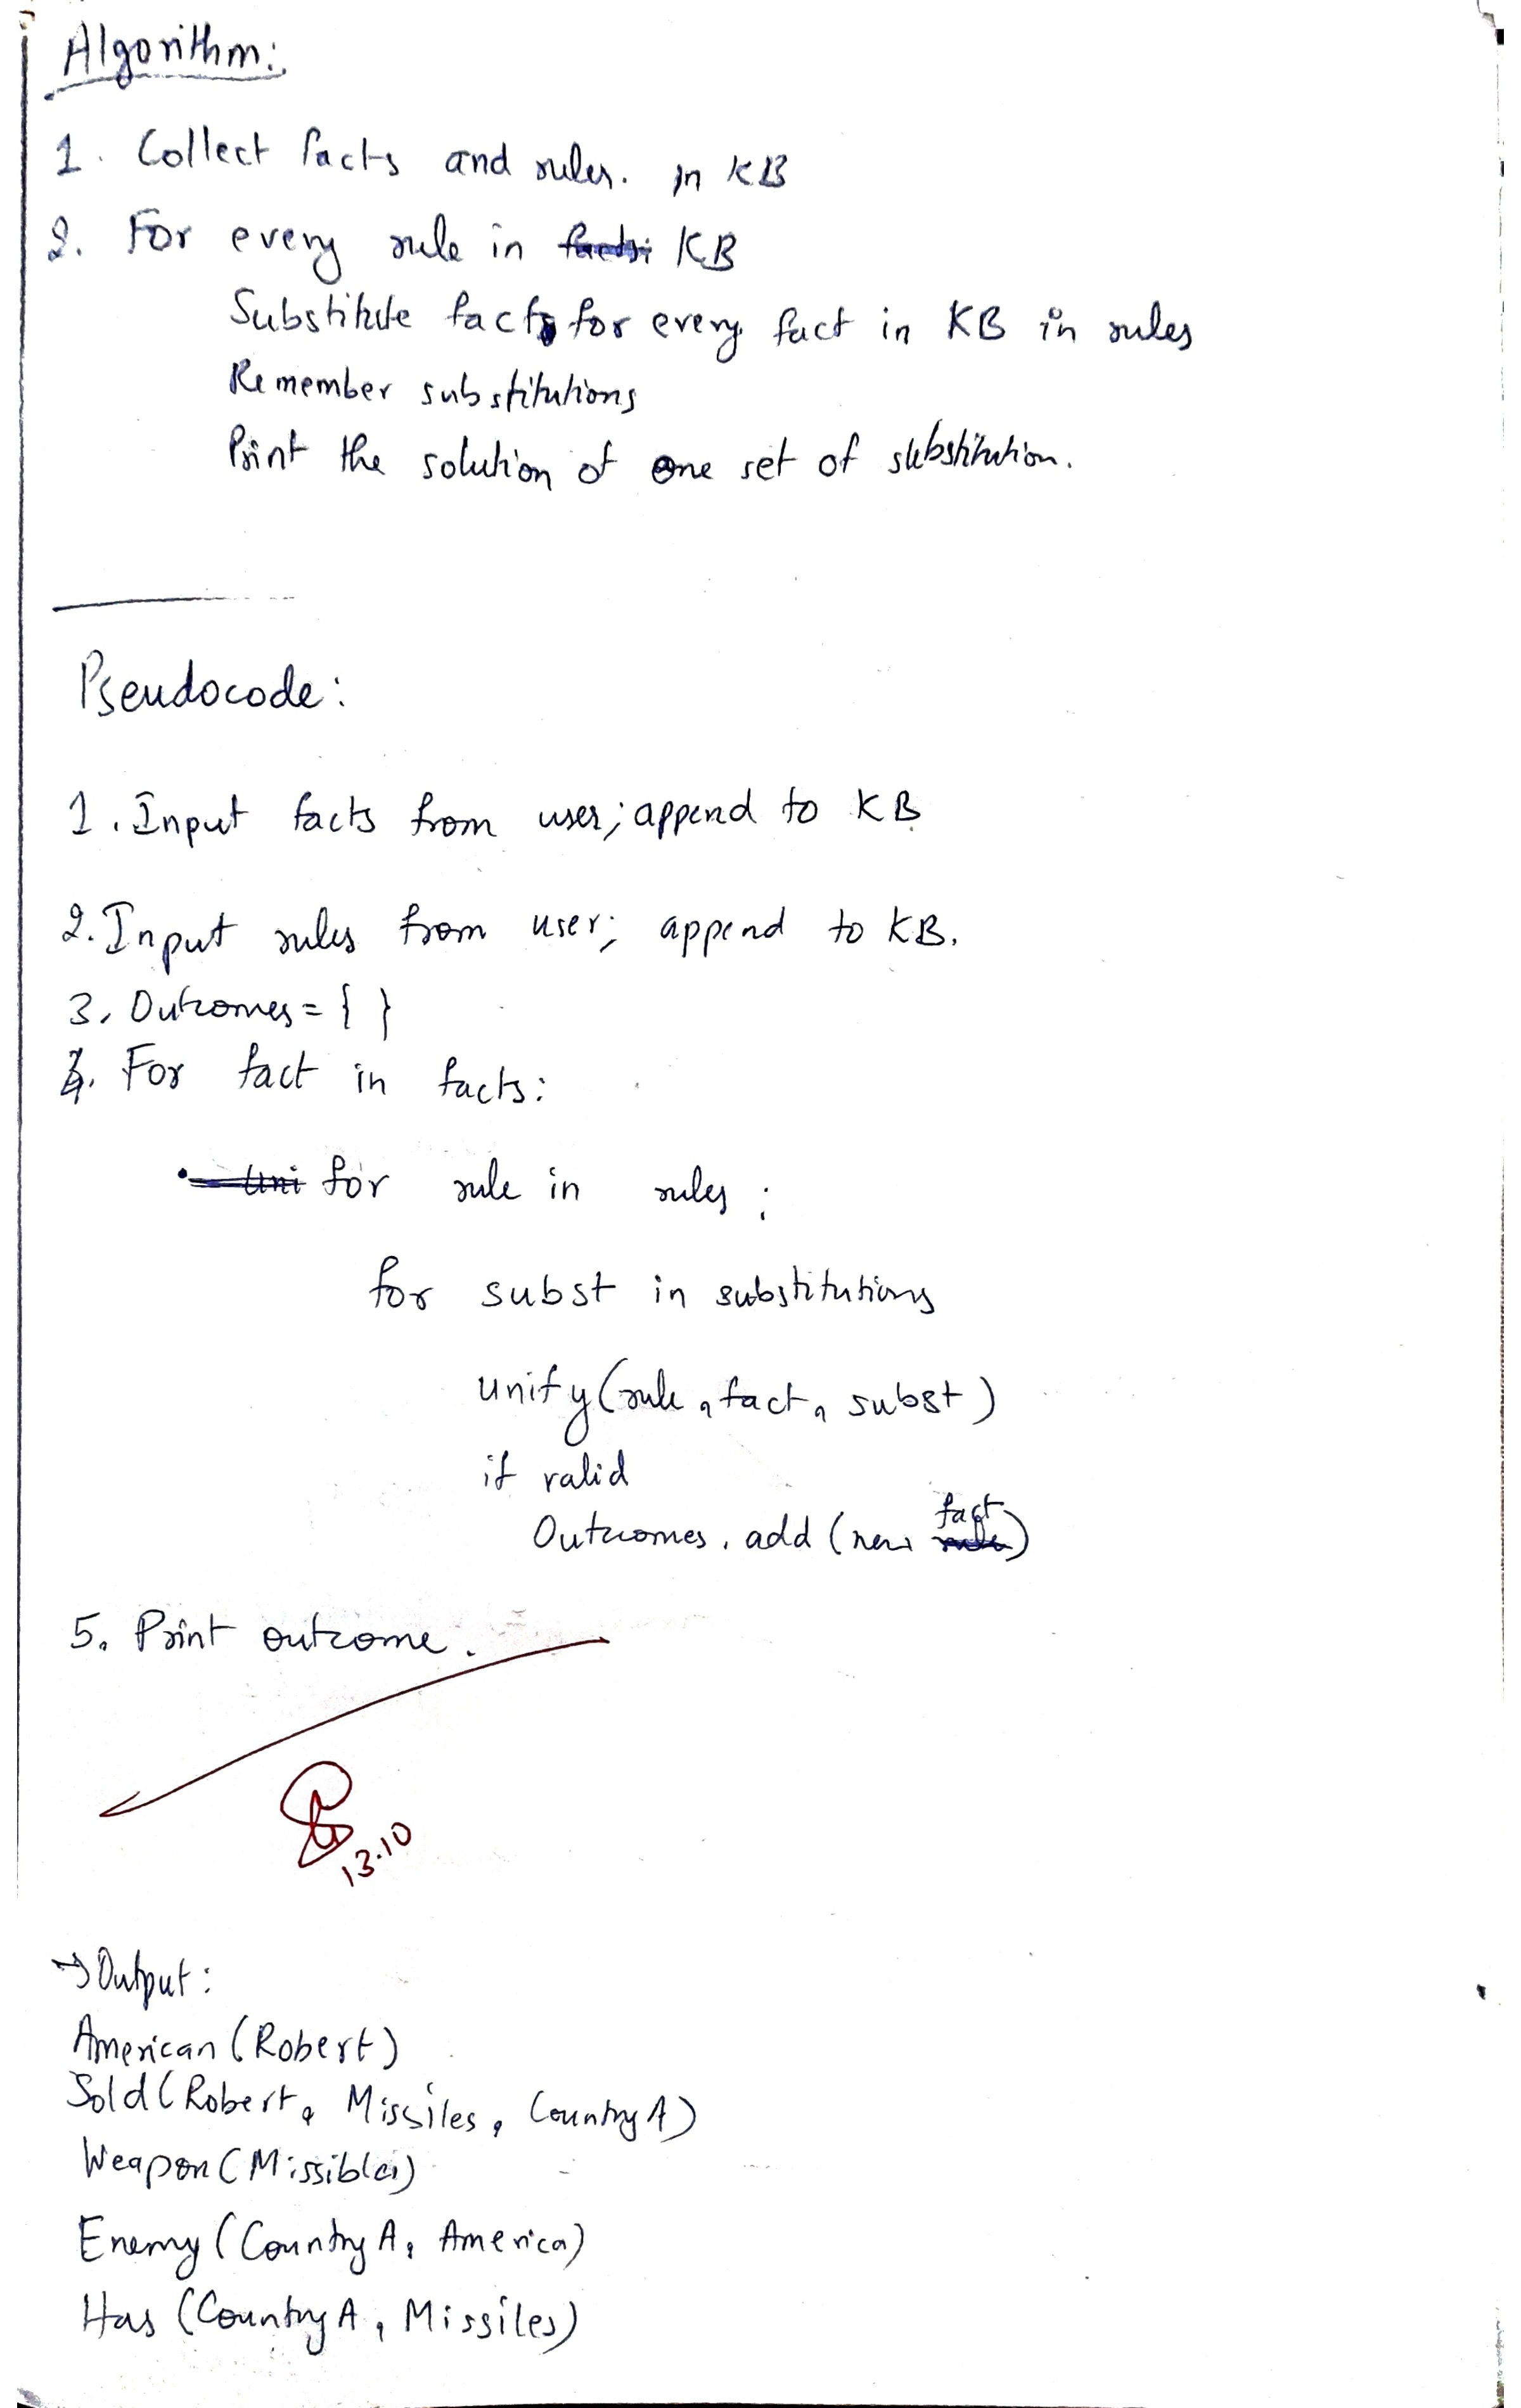 Algorithm:
1. Collect facts and rules. in KB
2. For every rule in KB
Substitute fact for every fact in KB in rules
Remember substitutions
Print the solution of one set of substitution.
Pseudocode:
1. Input facts from user; append to KB
2. Input rules from user; append to KB.
3. Outcomes = { }
4. For fact in facts:
for rule in rules:
for subst in substitutions
unify(rule, fact, subst)
if valid
Outcomes.add(new fact)
5. Print outcome.
13.10
→ Output:
American(Robert)
Sold(Robert, Missiles, CountryA)
Weapon(Missibles)
Enemy(CountryA, America)
Has(CountryA, Missiles)